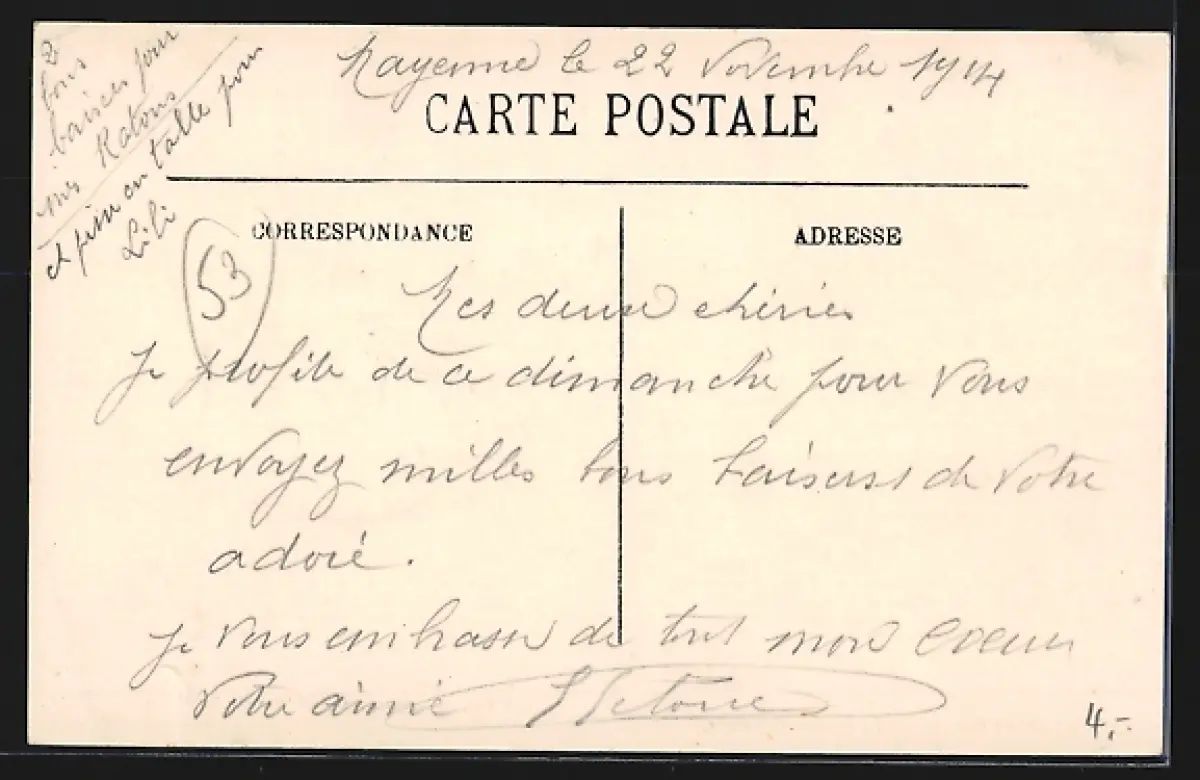 Mayenne le 22 Novembre 1914
CARTE POSTALE
2
bons
baises pour
mes Ratons
et pin en talle pour
Lili
CORRESPONDANCE
ADRESSE
53
Mes deux chéries
Je profite de ce dimanche pour Vous
envoyez milles bons baisers de Votre
adoré.
Je Vous embrasse de tout mon Coeur
Votre aimé
4,-